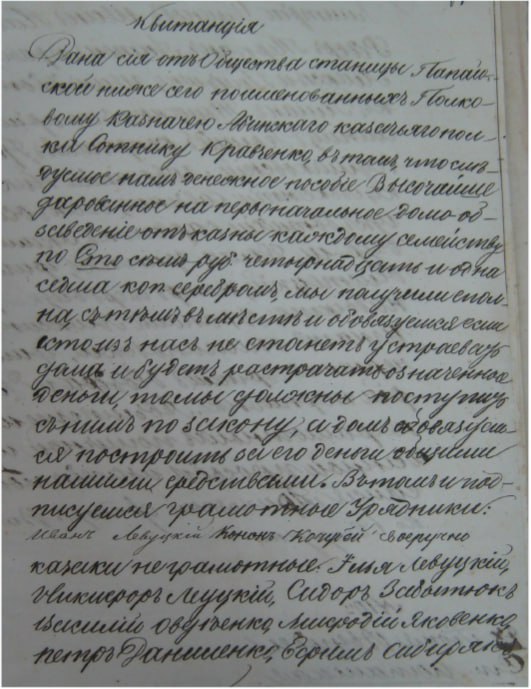 Квитанція
Дана сія отъ Общества станицы Папай-
ской ниже сего поименованныхъ Полко-
вому Казначею Абинскаго казачьяго пол-
ка Сотнику Кравченко, въ томъ, что слѣ-
дуемое намъ денежное пособіе Высочайше
дарованное на первоначальное домо-об-
заведеніе отъ казны каждому семейству
по Сто семь руб. четырнадцать и одна
седьма коп. серебромъ, мы получили спол-
на, съ тѣмъ вмѣстѣ и обязуемся если
кто изъ насъ не станетъ устраевать
дома и будетъ растрачать означенное
деньги, то мы должны поступить
съ нимъ по закону, а домъ обязуем-
ся построить за его деньги общими
нашими средствами. Въ томъ и под-
писуемся грамотные Урядники:
Иванъ Левуцкій Кононъ Кочергей своеручно
казаки неграмотные. Илья Левуцкій,
Никифоръ Леуцкій, Сидоръ Забытюкъ
Василий Овдченко, Мифодій Яковенко,
петръ Даниленко, Ефимъ Сибиряко